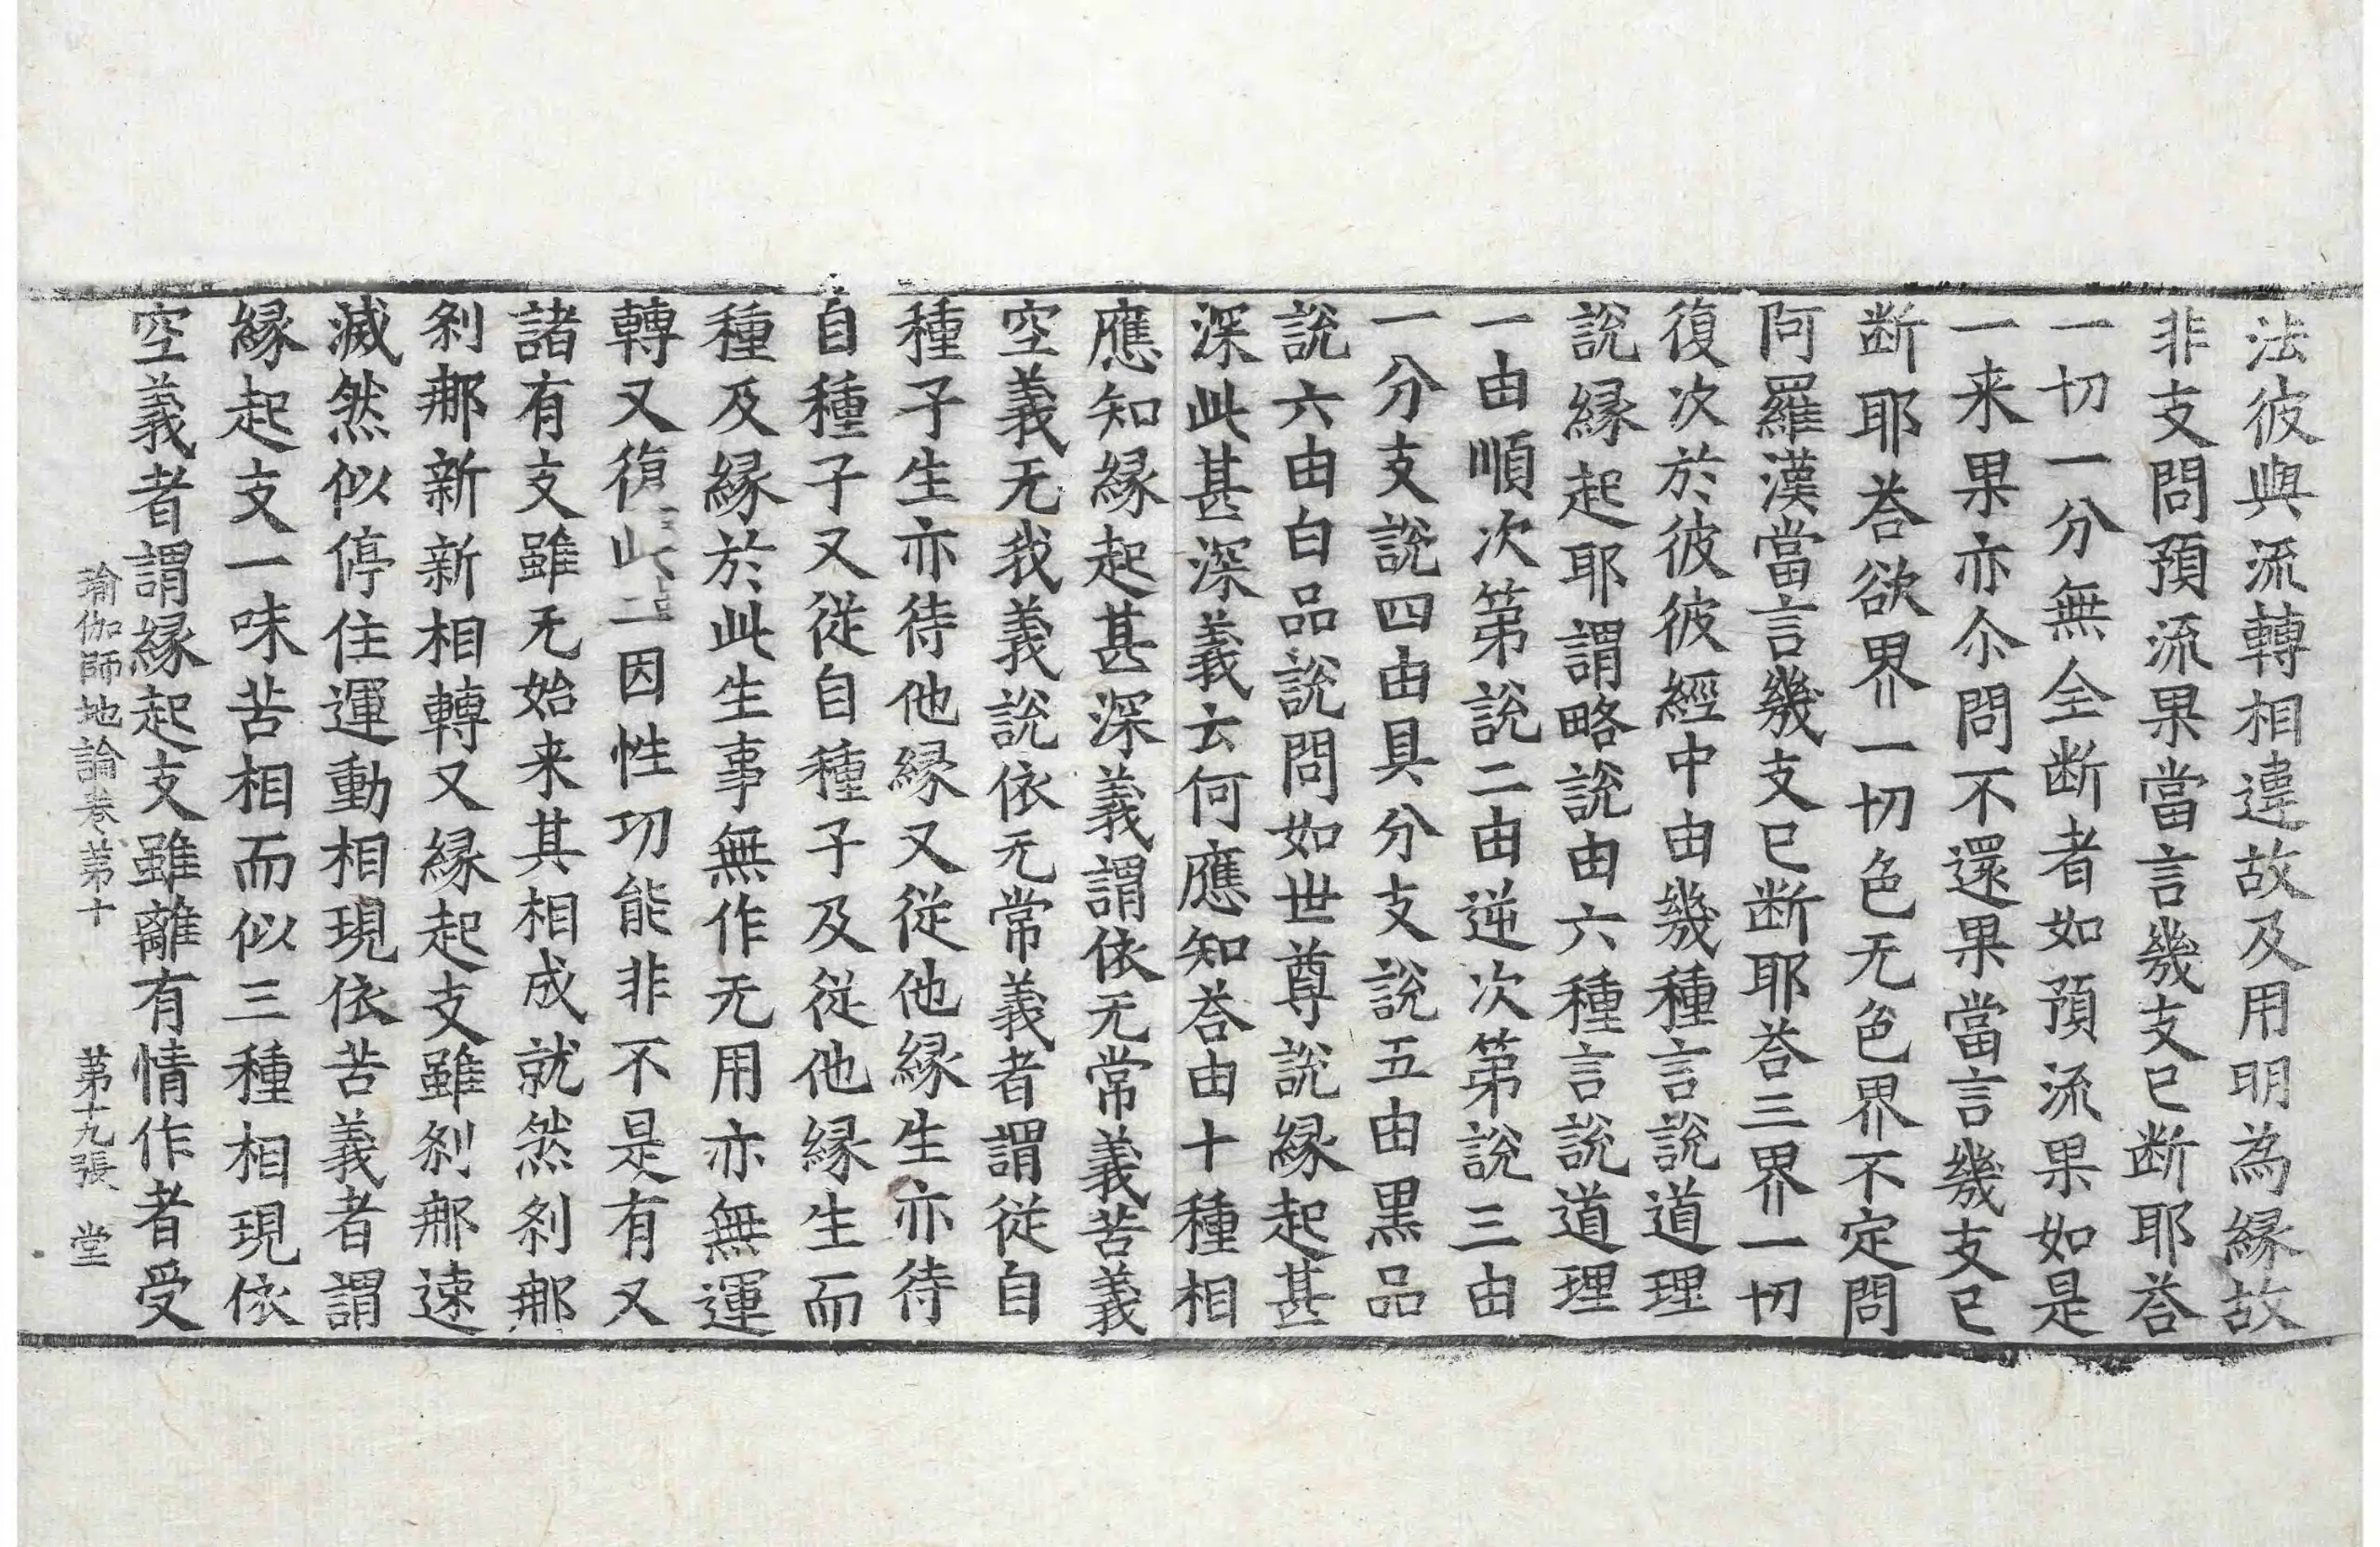 法彼與流轉相違故及用明為縁故
非支問預流果當言幾支已断耶荅
一切一分無全断者如預流果如是
一来果亦尒問不還果當言幾支已
断耶荅欲界一切色无色界不定問
阿羅漢當言幾支已断耶荅三界一切
復次於彼彼經中由幾種言說道理
說縁起耶謂略說由六種言說道理
一由順次第說二由逆次第說三由
一分支說四由具分支說五由黒品
說六由白品說問如世尊說縁起甚
深此甚深義云何應知荅由十種相
應知縁起甚深義謂依无常義苦義
空義无我義說依无常義者謂從自
種子生亦待他縁又從他縁生亦待
自種子又從自種子及從他縁生而
種及縁於此生事無作无用亦無運
轉又復此二因性功能非不是有又
諸有支雖无始来其相成就然刹那
刹那新新相轉又縁起支雖刹那速
滅然似停住運動相現依苦義者謂
縁起支一味苦相而似三種相現依
空義者謂縁起支雖離有情作者受
瑜伽師地論卷第十 第十九張 堂